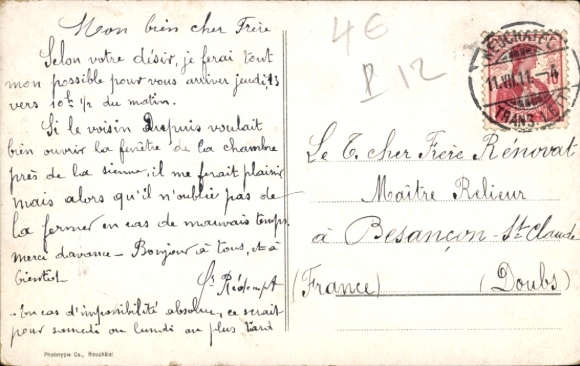 Mon bien cher Frère
Selon votre désir, je ferai tout
mon possible pour vous arriver jeudi, 13
vers 10h ½ du matin.
Si le voisin Depuis voulait
bien ouvrir la fenêtre de la chambre
près de la sienne, il me ferait plaisir
mais alors qu'il n'oublie pas de
la fermer en cas de mauvais temps.
merci d'avance - Bonjour à tous, et à
bientôt
En cas d'impossibilité absolue, ce serait
pour samedi ou lundi au plus tard
Phototypie Co., Neuchâtel
4€
P 12
NEUCHATEL
11.VII.11.
Le T. cher Frère Rénovat
Maître Relieur
à Besançon - St Claude
(France) (Doubs)